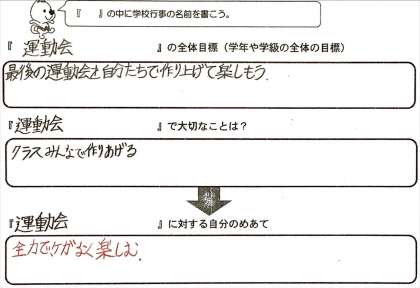 『　』の中に学校行事の名前を書こう。
『 運動会 』の全体目標（学年や学級の全体の目標）
最後の運動会を自分たちで作り上げて楽しもう.
『運動会 』で大切なことは？
クラスみんなで作りあげる
『運動会 』に対する自分のめあて
全力でケガなく楽しむ.